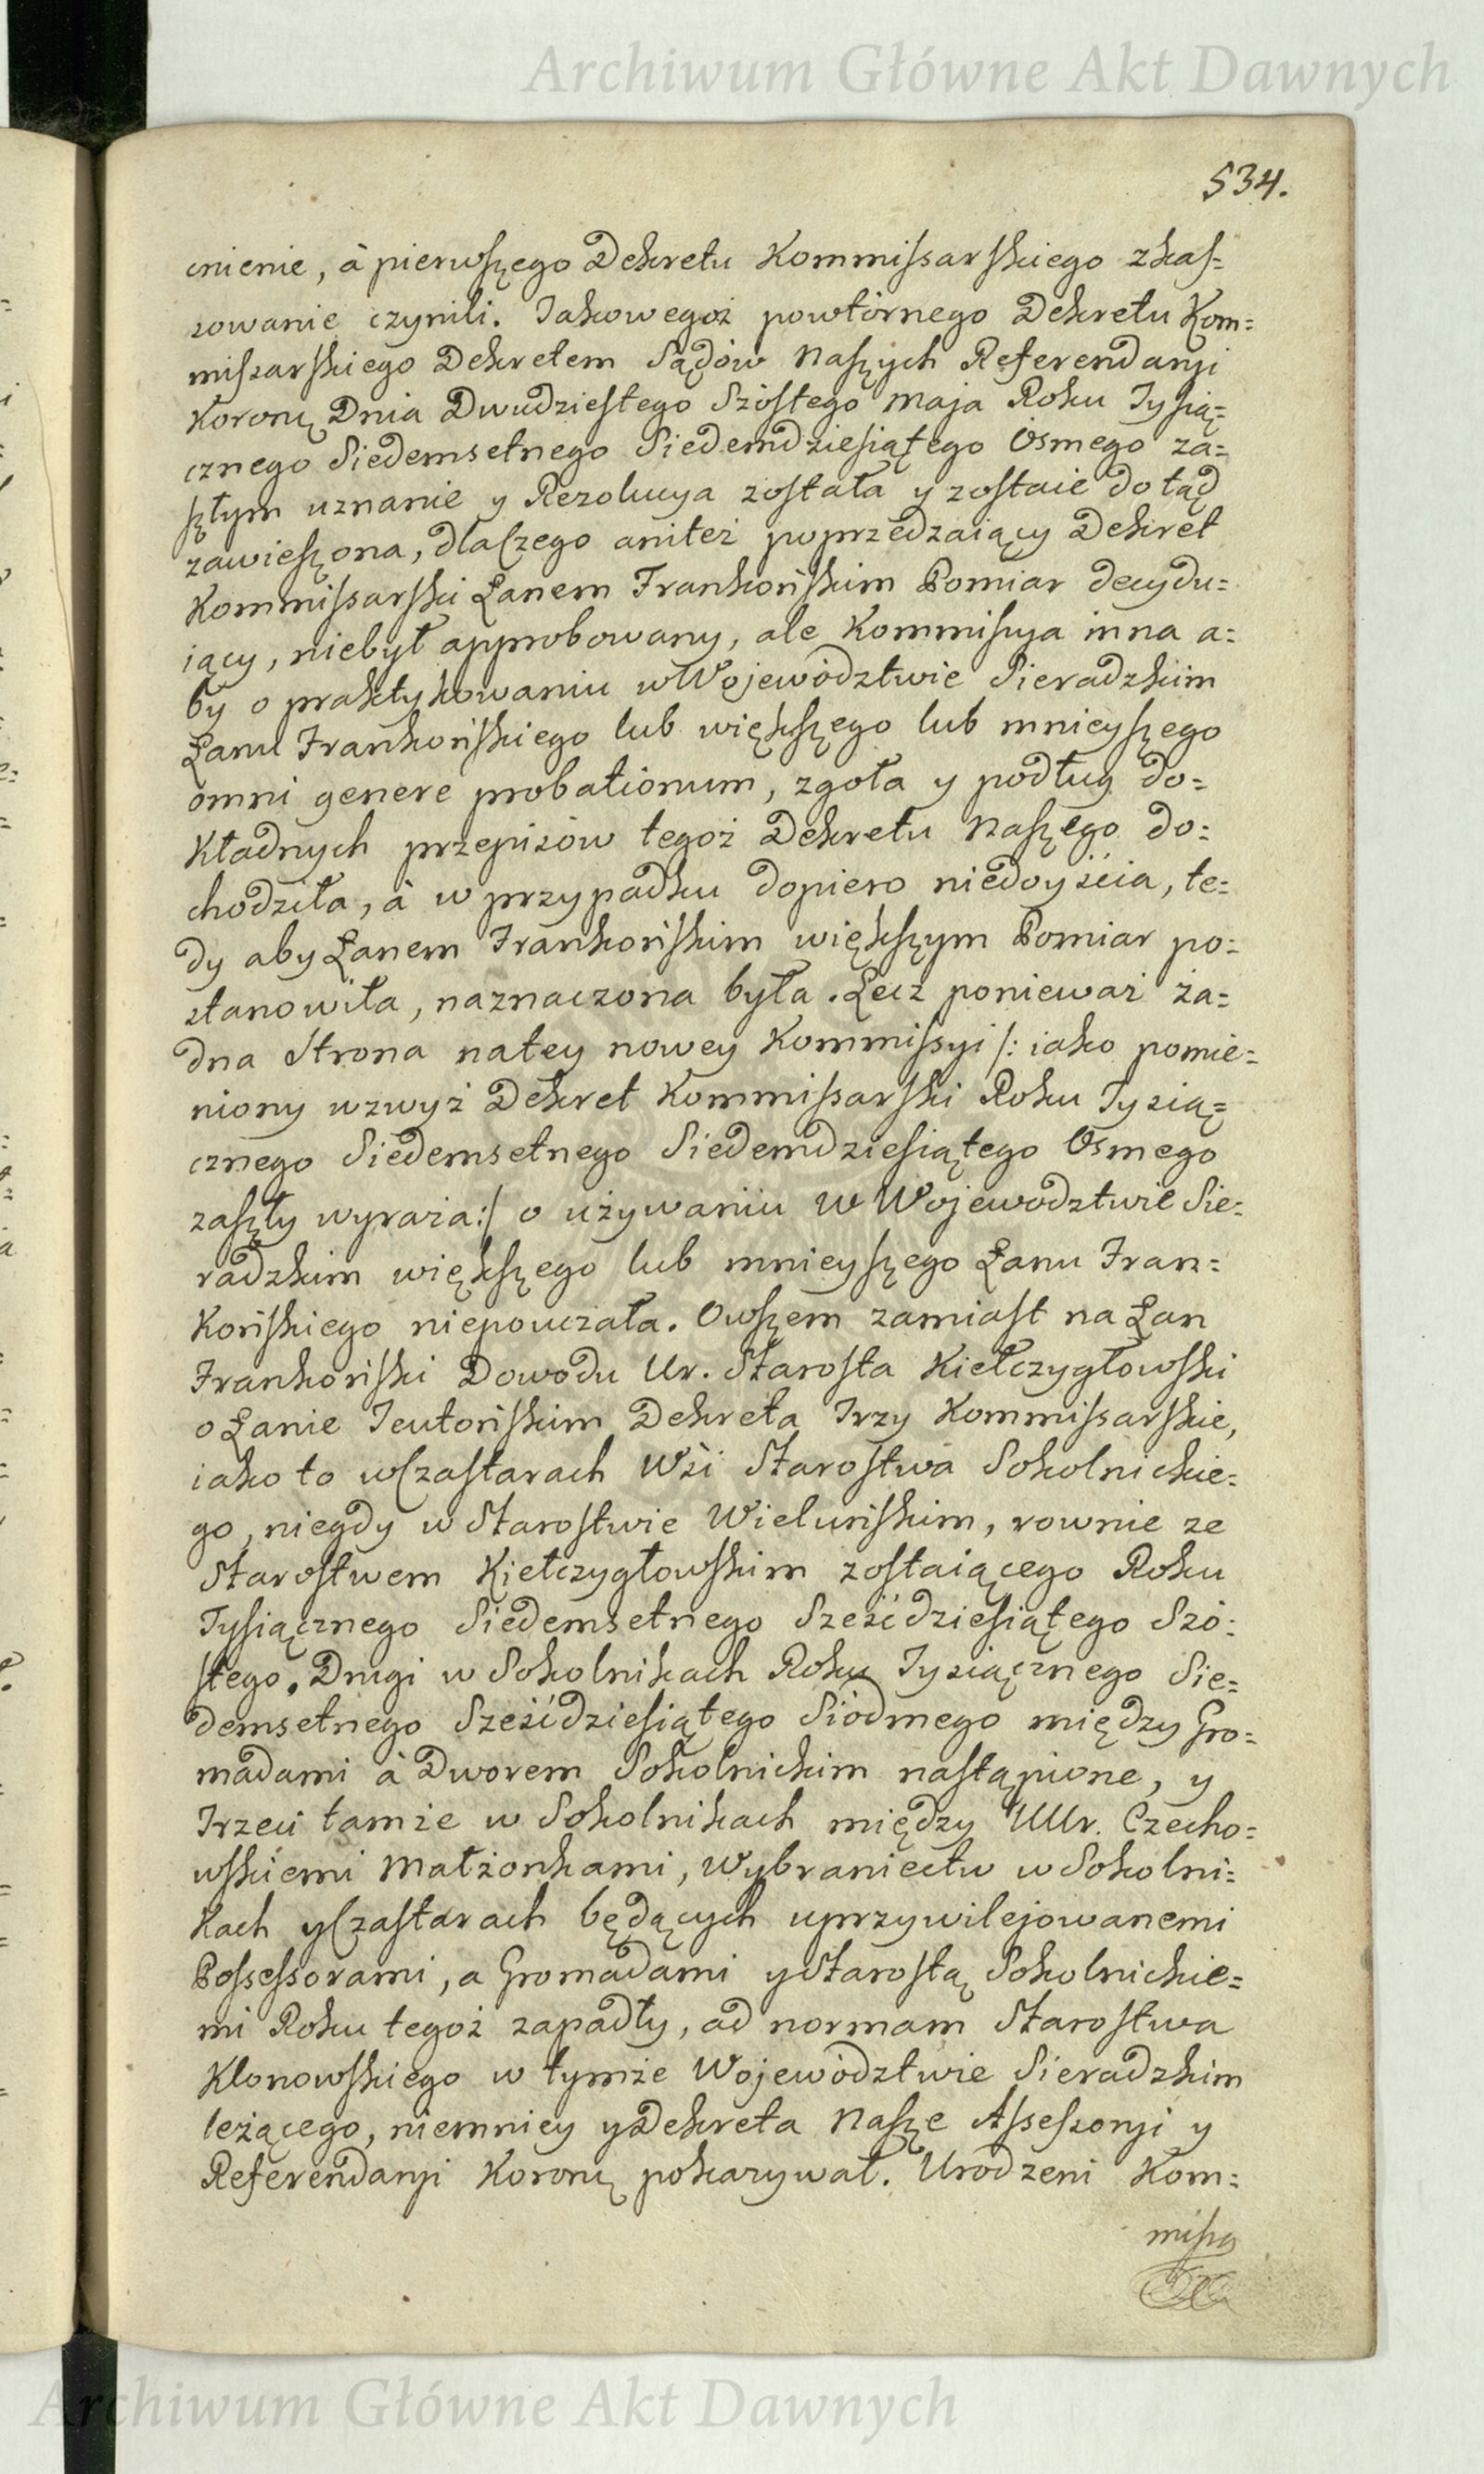 Archiwum Główne Akt Dawnych
534.
cnienie, à pierwszego Dekretu Kommissarskiego zkas=
sowanie czynili. Jakowegoż powtórnego Dekretu Kom=
missarskiego Dekretem Sądów Naszych Referendaryi
Koronę Dnia Dwudziestego Szóstego Maja Roku Tysią=
cznego Siedemsetnego Siedemdziesiątego Osmego za=
szłym uznanie y Rezolucya została y zostaie do tąd
zawieszona, dlaczego aniteż poprzedzaiący Dekret
Kommissarski Łanem Frankońskim Pomiar decydu=
iący, niebył approbowany, ale Kommissya inna a=
by o praktykowaniu w Województwie Sieradzkim
Łanu Frankońskiego lub większego lub mnieyszego
omni genere probationum, zgoła y podług do=
kładnych przepisów tegoż Dekretu Naszego do=
chodziła, à w przypadku dopiero niedoyścia, te=
dy aby Łanem Frankońskim większym Pomiar po=
stanowiła, naznaczona była. Lecz ponieważ ża=
dna Strona natey nowey Kommissyi /: iako pomie=
niony wzwyż Dekret Kommissarski Roku Tysią=
cznego Siedemsetnego Siedemdziesiątego Osmego
zaszły wyraża :/ o używaniu w Wojewodztwie Sie=
radzkim większego lub mnieyszego Łanu Fran=
Końskiego niepouczała. Owszem zamiast na Łan
Frankoński Dowodu Ur. Starosta Kiełczygłowski
o Łanie Teutońskim Dekreta Trzy Kommissarskie,
iako to w Czastarach Wsi Starostwa Sokolnickie=
go, niegdy w Starostwie Wieluńskim, rownie ze
Starostwem Kiełczygłowskim zostaiącego Roku
Tysiącznego Siedemsetnego Sześćdziesiątego Szó=
stego. Drugi w Sokolnikach Roku Tysiącznego Sie=
demsetnego Sześćdziesiątego Siódmego między Gro=
madami à Dworem Sokolnickim nastąpione, y
Trzeci tamże w Sokolnikach między UUr. Czecho=
wskiemi Małżonkami, Wybraniectw w Sokolni=
kach y Czastarach będących uprzywilejowanemi
Possessorami, a Gromadami y Starostą Sokolnickie=
mi Roku tegoż zapadły, ad normam Starostwa
Klonowskiego w tymże Województwie Sieradzkim
leżącego, niemniey y Dekreta Nasze Assessoryi y
Referendaryi Koronę pokazywał. Urodzeni Kom=
missa
Archiwum Główne Akt Dawnych